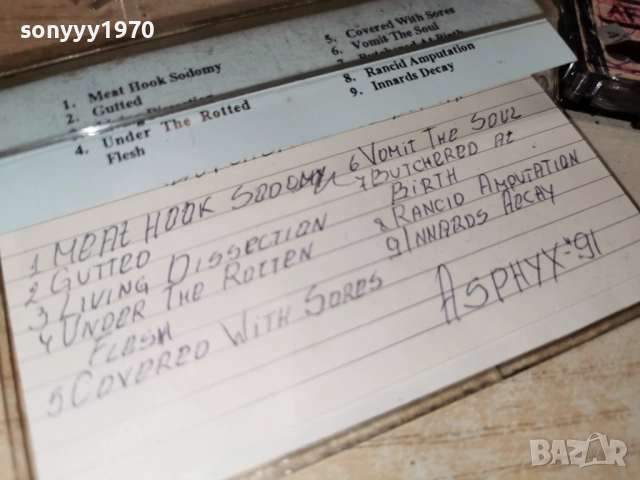 sonyyy1970
1. Meat Hook Sodomy
2. Gutted
4. Under The Rotted
Flesh
5. Covered With Sores
6. Vomit The Soul
7. Butchered At Birth
8. Rancid Amputation
9. Innards Decay
1 MEAT HOOK SODOMY
2 GUTTED
3 LIVING DISSECTION
4 UNDER THE ROTTEN
FLESH
5 COVERED WITH SORES
6 VOMIT THE SOUL
7 BUTCHERED AT
BIRTH
8 RANCID AMPUTATION
9 INNARDS DECAY
ASPHYX-'91
BAZAR